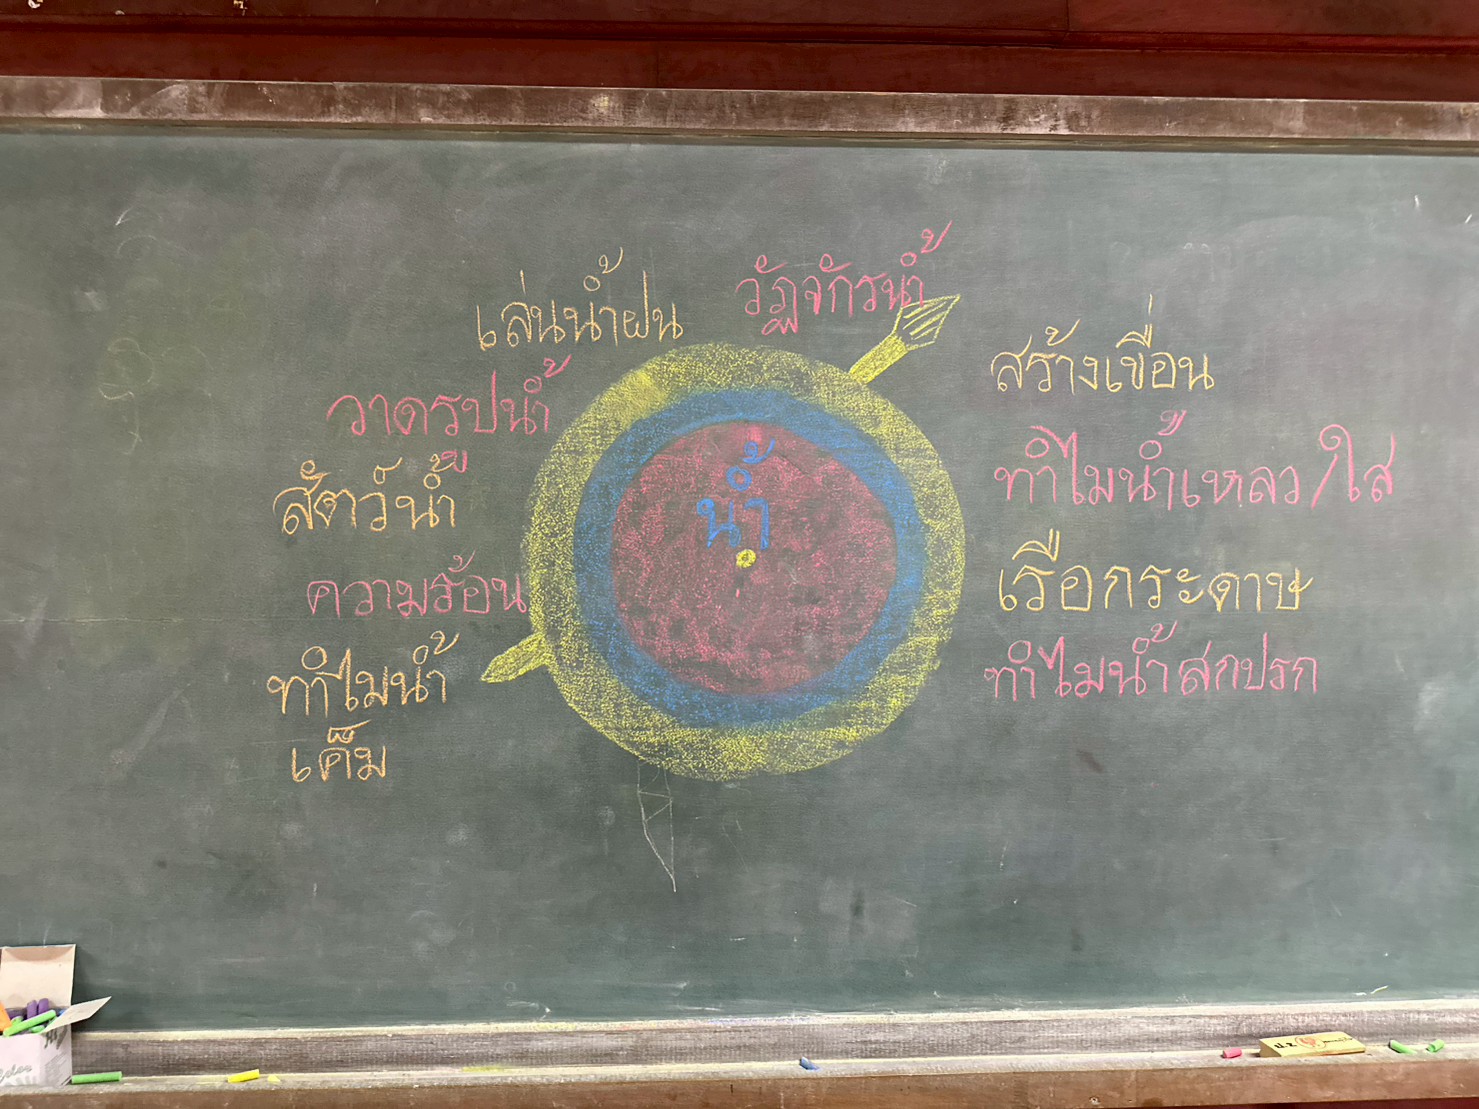 เล่นน้ำฝน
วัฏจักรน้ำ
วาดรูปน้ำ
สร้างเขื่อน
สัตว์น้ำ
ทำไมน้ำเหลว/ใส
น้ำ
ความร้อน
เรือกระดาษ
ทำไมน้ำ
เค็ม
ทำไมน้ำสกปรก
ป.2